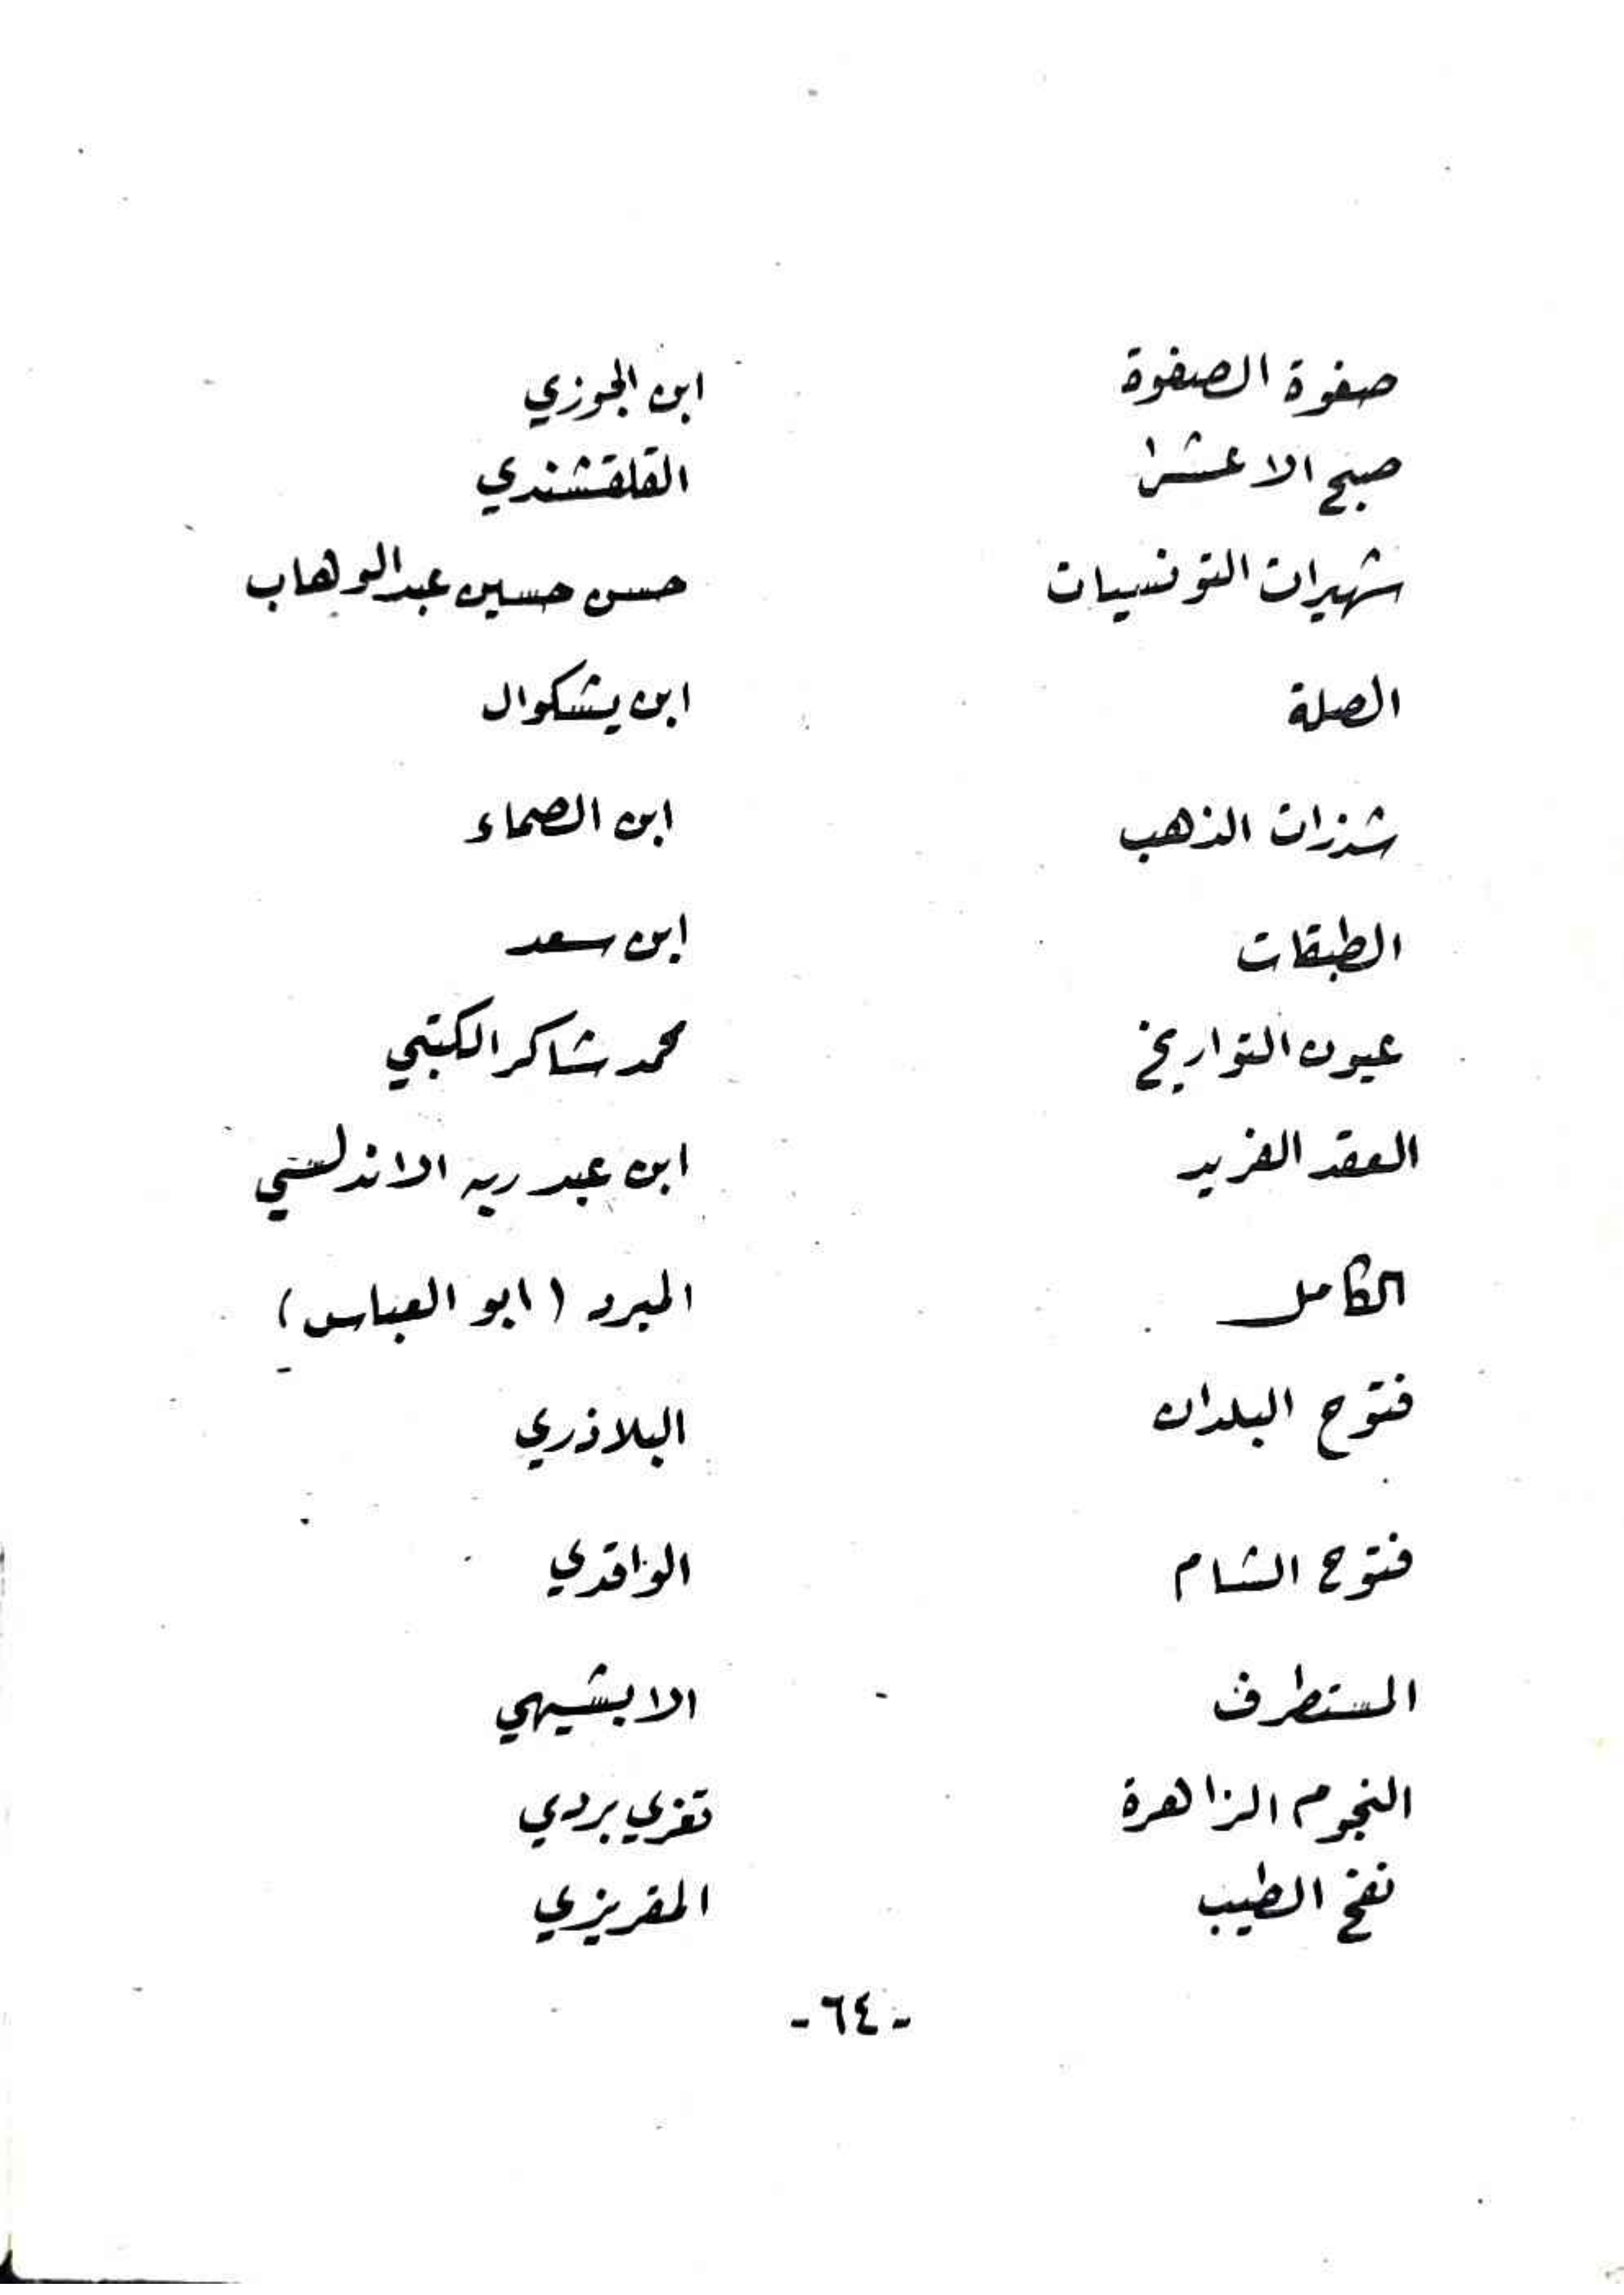 صفوة الصفوة ابن الجوزي
صبح الاعشا القلقشندي
شهيرات التونسيات حسن حسين عبدالوهاب
الصلة ابن يشكوال
شذرات الذهب ابن الصماء
الطبقات ابن سعد
عيون التواريخ محمد شاكر الكتبي
العقد الفريد ابن عبد ربه الاندلسي
الكامل المبرد (ابو العباس)
فتوح البلدان البلاذري
فتوح الشام الواقدي
المستطرف الابشيهي
النجوم الزاهرة تغري بردي
نفح الطيب المقريزي
-٦٤-